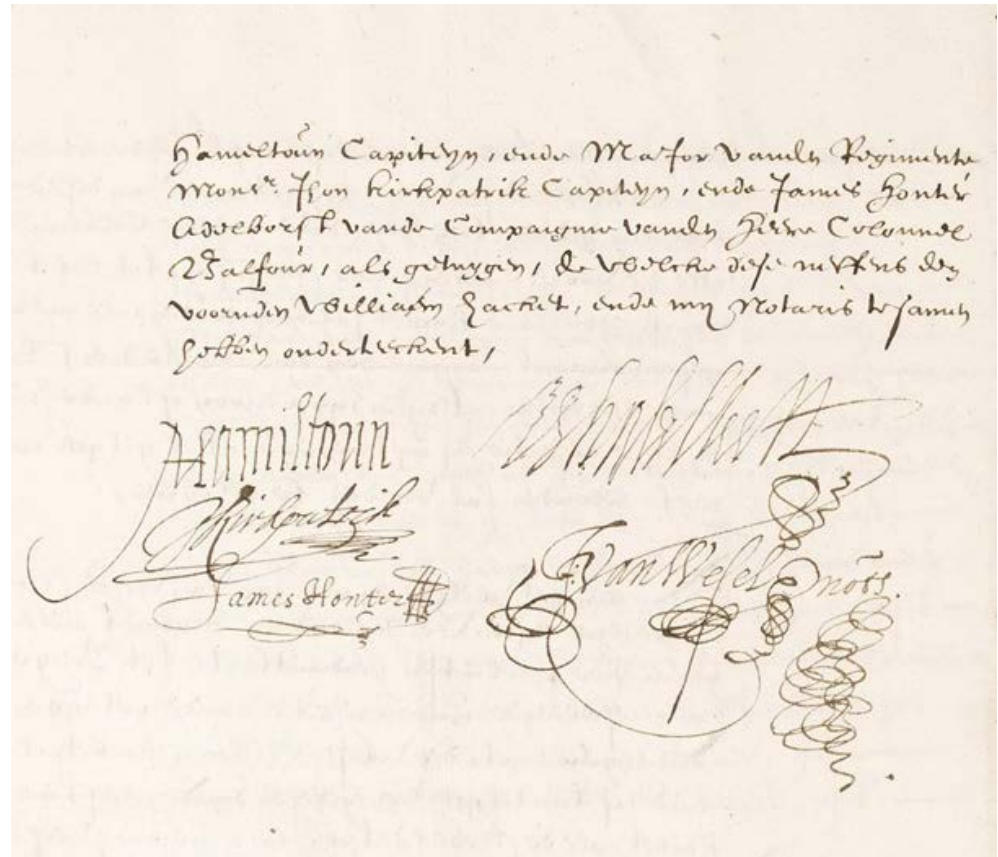 Hameltoun Capiteyn, ende Major vanden Regimente
Monsr. Jhon kirkpatrik Capiteyn, ende James Honter
Adelborst vande Compaignie vanden Heere Colonnel
Balfour, als getuygen, de welcke dese neffens den
voornden William Hacket, ende my Notaris te samen
hebben onderteekent,
Hamiltoun
JKirkpatrik
James Honter
F. Van Wesel nots.